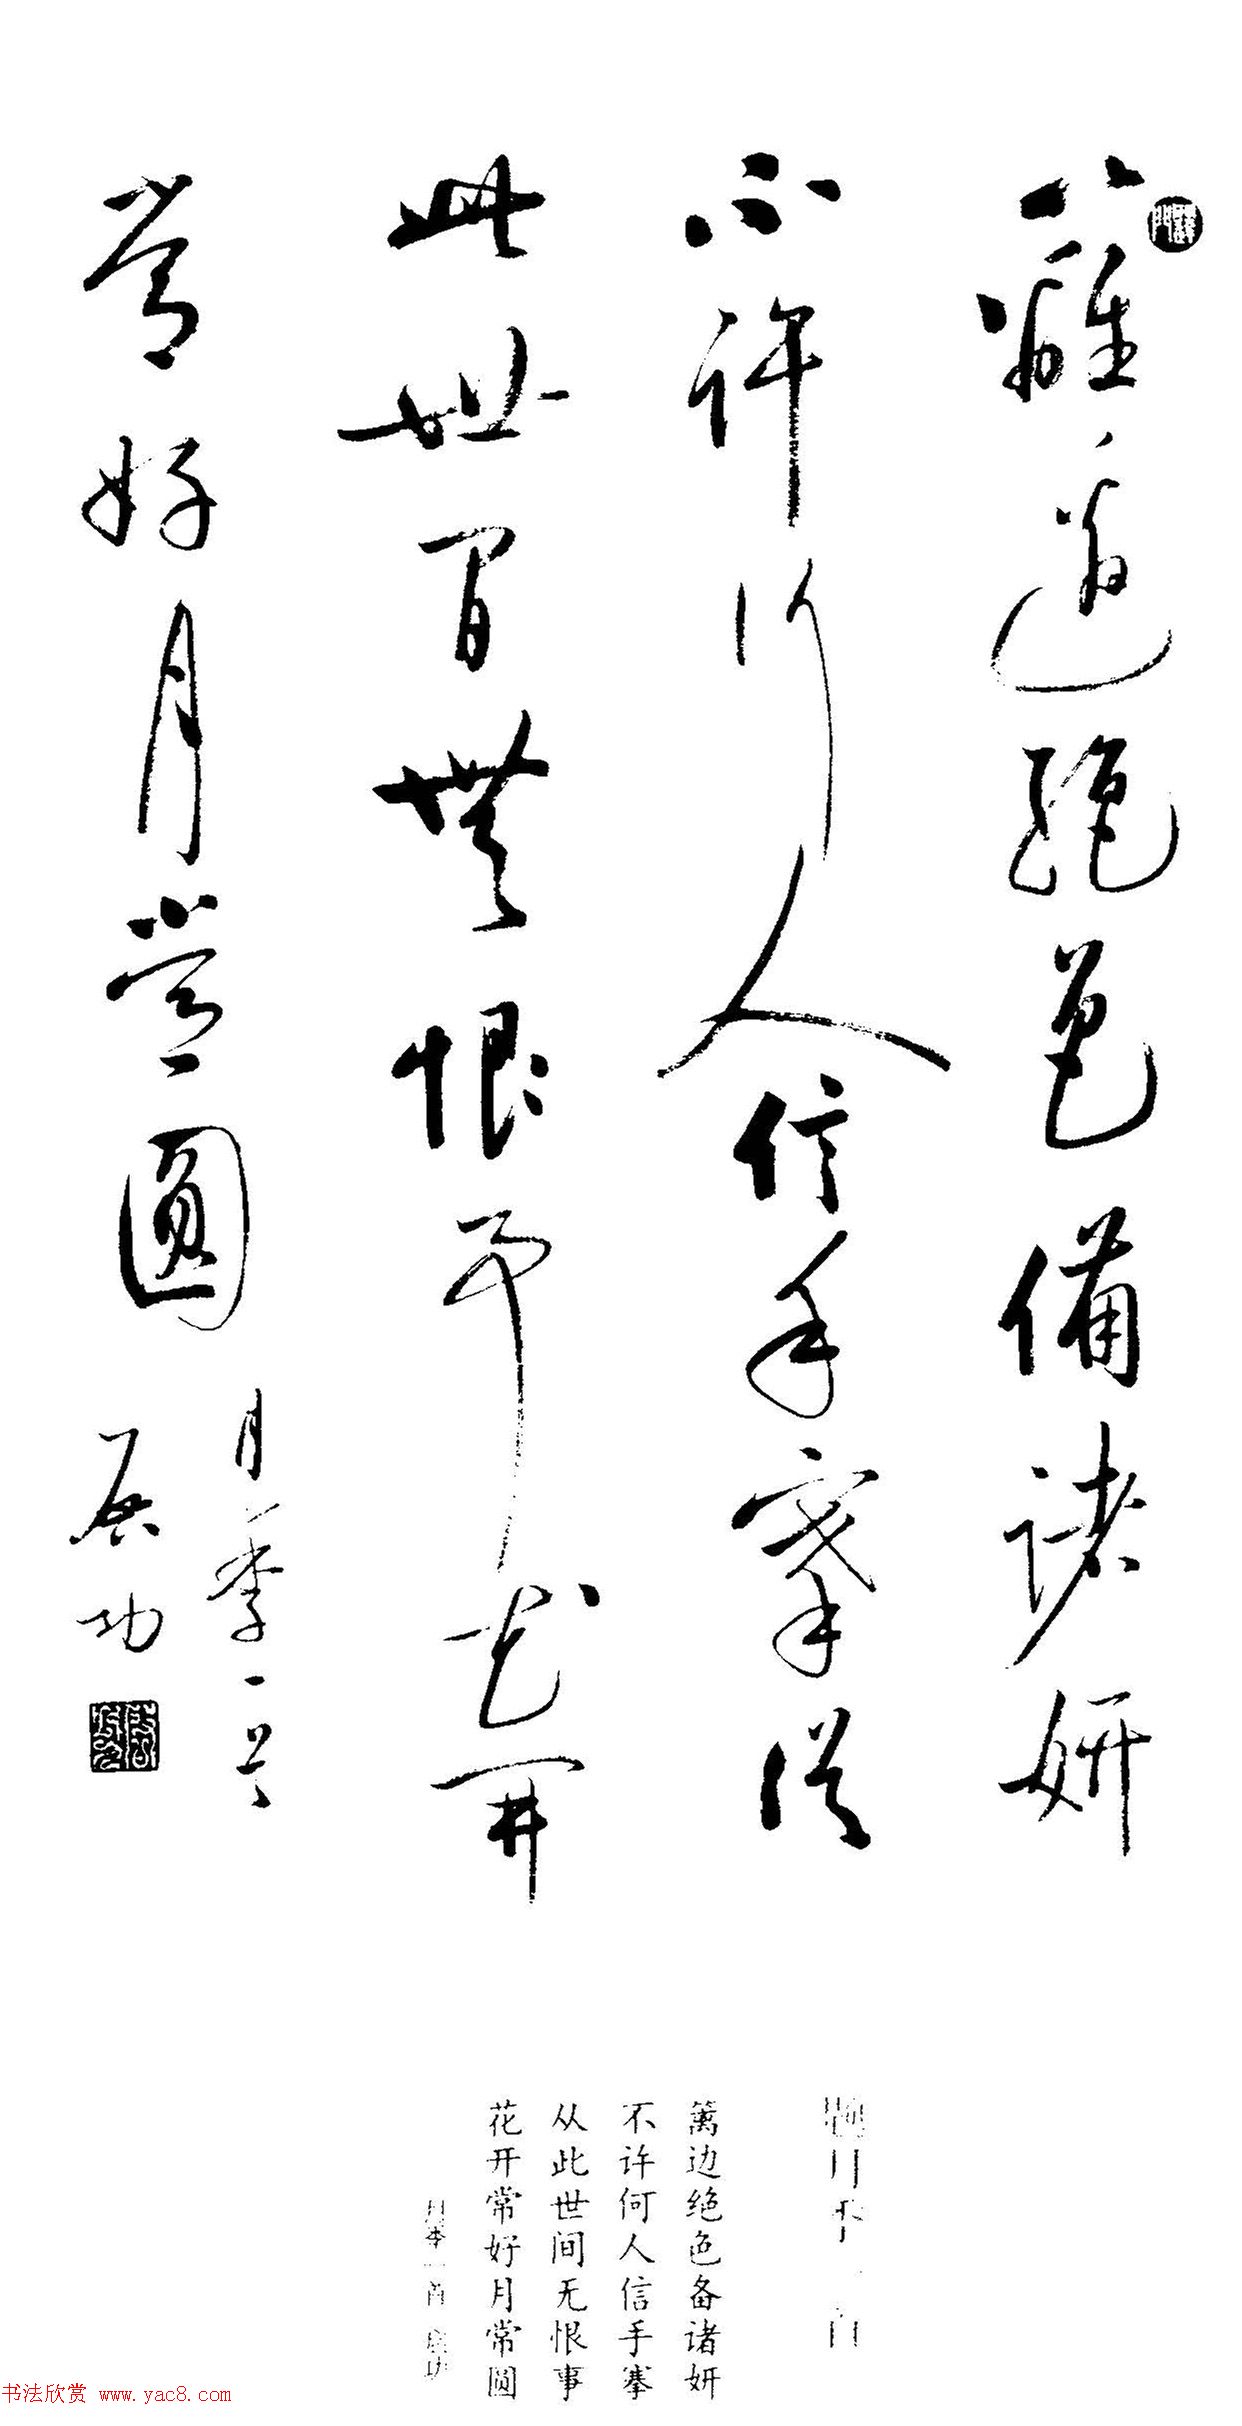 籬邊絕色備諸妍
不許何人信手搴從
此世间無恨事花開
常好月常圓
月季一首
启功
题月季一首
篱边绝色备诸妍
不许何人信手搴
从此世间无恨事
花开常好月常圆
月季一首 启功
书法欣赏 www.yac8.com